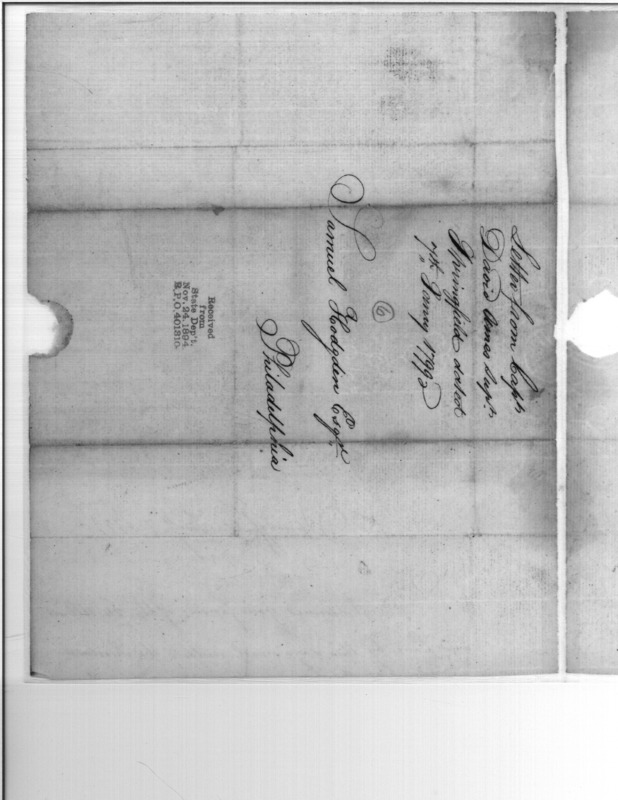 Letter from Capt
David Ames Supt.
Springfield dated
7th Janry 1792
6
Samuel Hodgden Esqr
Philadelphia
Received
from
State Dep't.
Nov. 24, 1894
R.P.O. 401810